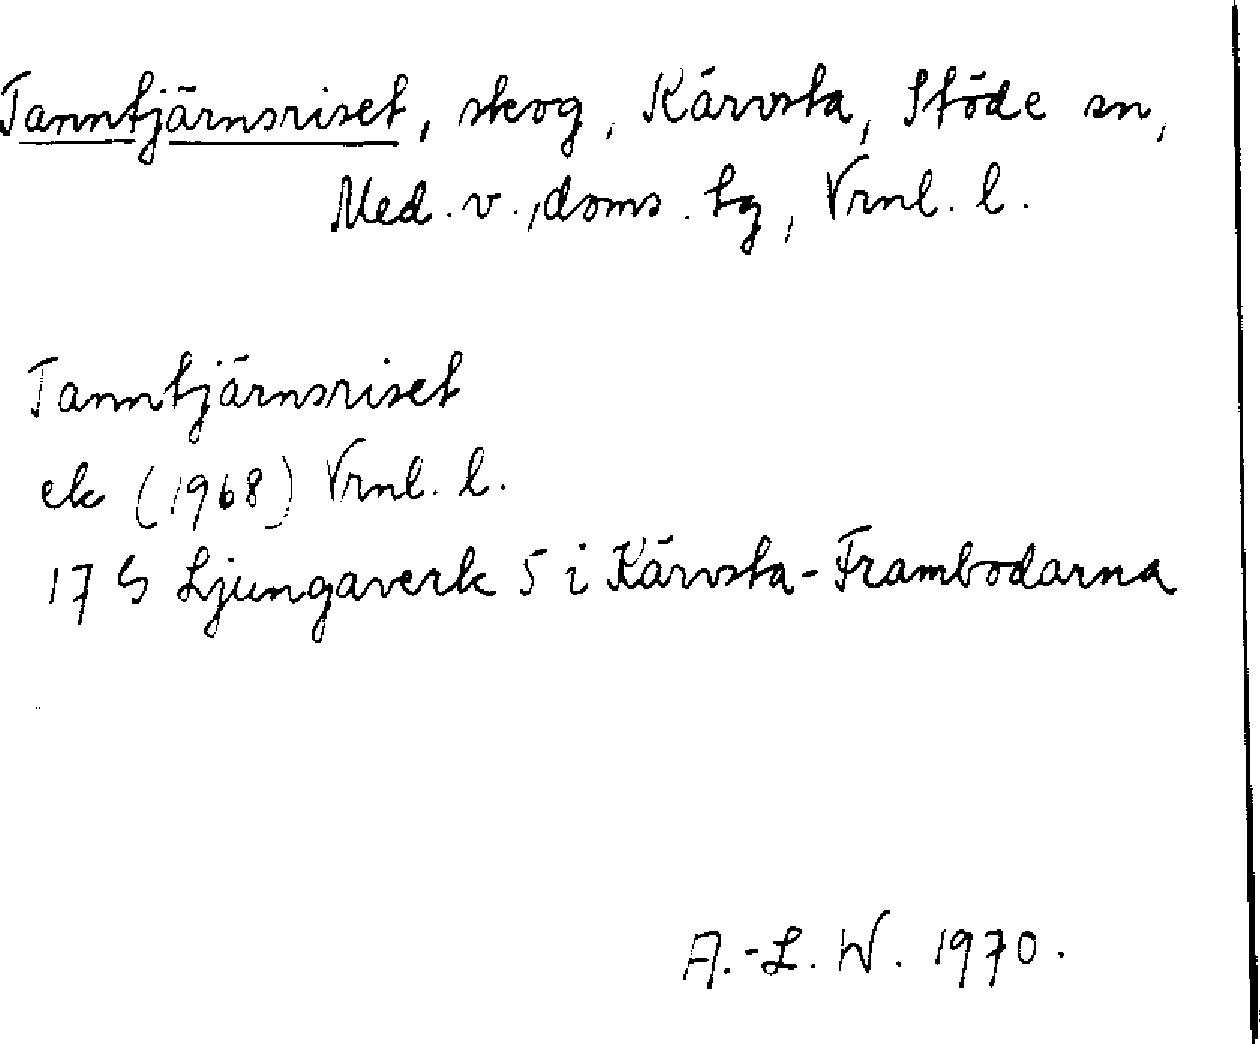 Tanntjärnsriset, skog, Kärvsta, Stöde sn,
Med. v., doms. tg, Vrnl. l.
Tanntjärnsriset
ek (1968) Vrnl. l.
17 G Ljungaverk 5 i Kärvsta-Frambodarna
A.-L. W. 1970.